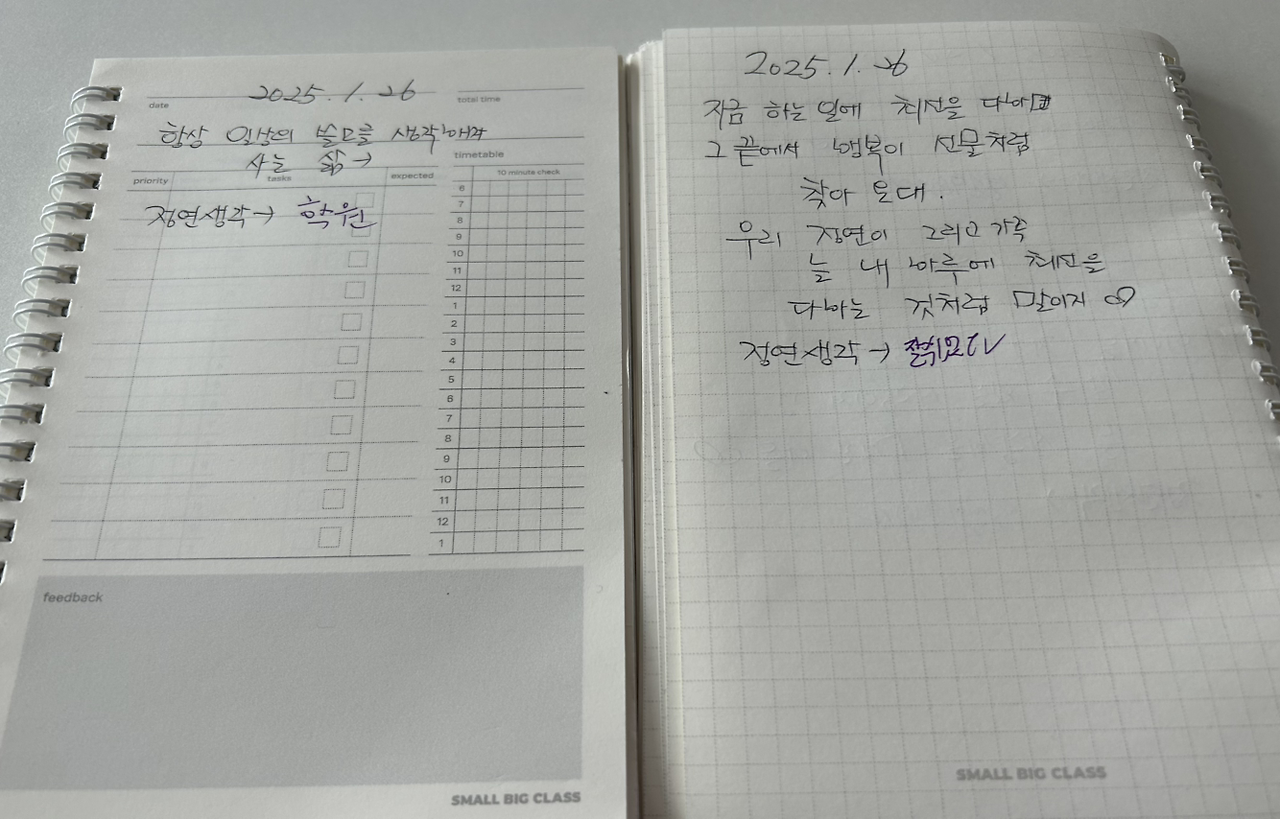 date 2025.1.26 total time
항상 일상의 쓸모를 생각하며
사는 삶→
timetable
priority tasks expected 10 minute check
정연생각→ 학원
6
7
8
9
10
11
12
1
2
3
4
5
6
7
8
9
10
11
12
1
feedback
SMALL BIG CLASS
2025.1.26
지금 하는 일에 최선을 다하면
그 끝에서 행복이 선물처럼
찾아 온대.
우리 정연이 그리고 가족
늘 내 하루에 최선을
다하는 것처럼 말이지 ♡
정연생각→
SMALL BIG CLASS